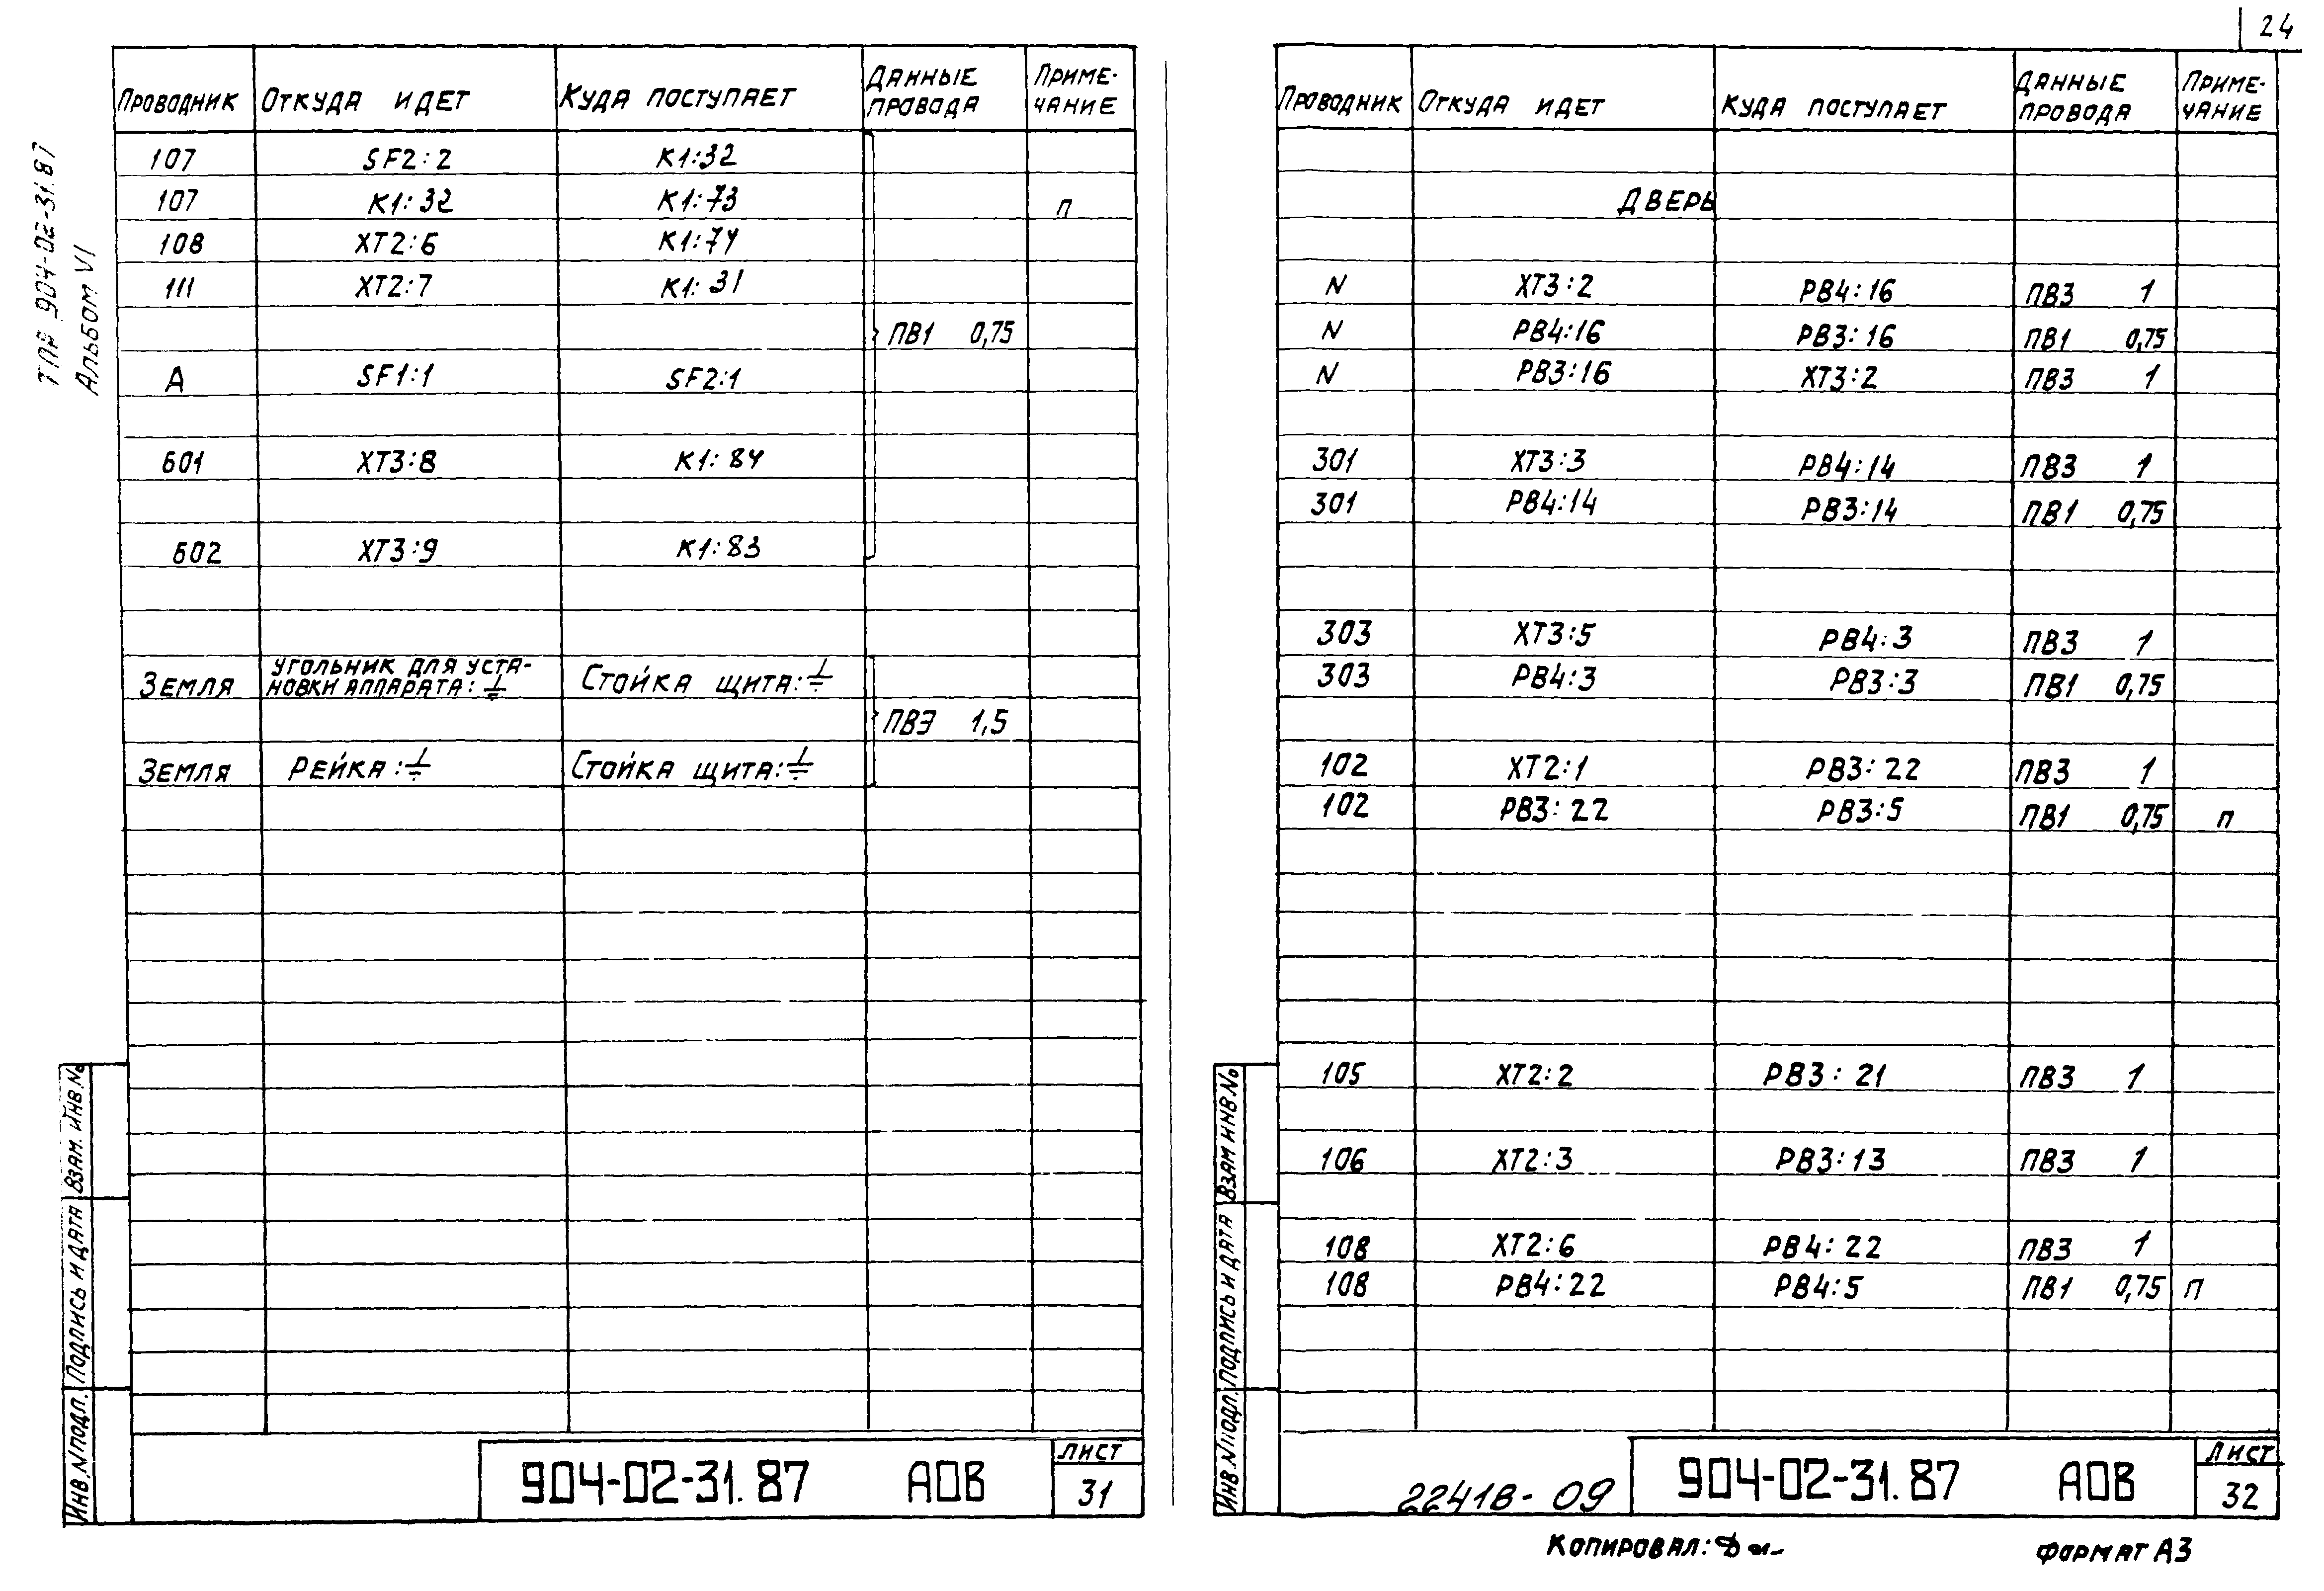 24
ТПР 904-02-31.87
Альбом VI
Проводник Откуда идет Куда поступает Данные провода Примечание
107 SF2:2 К1:32
107 К1:32 К1:73 п
108 ХТ2:6 К1:74
111 ХТ2:7 К1:31
ПВ1 0,75
А SF1:1 SF2:1
601 ХТ3:8 К1:84
602 ХТ3:9 К1:83
Земля Угольник для уста-
новки аппарата:⏚ Стойка щита:⏚
ПВЗ 1,5
Земля Рейка:⏚ Стойка щита:⏚
Инв.N подл. Подпись и дата Взам. инв.№
904-02-31.87 АОВ
Лист
31
Проводник Откуда идет Куда поступает Данные провода Примечание
Дверь
N ХТ3:2 РВ4:16 ПВ3 1
N РВ4:16 РВ3:16 ПВ1 0,75
N РВ3:16 ХТ3:2 ПВ3 1
301 ХТ3:3 РВ4:14 ПВ3 1
301 РВ4:14 РВ3:14 ПВ1 0,75
303 ХТ3:5 РВ4:3 ПВ3 1
303 РВ4:3 РВ3:3 ПВ1 0,75
102 ХТ2:1 РВ3:22 ПВ3 1
102 РВ3:22 РВ3:5 ПВ1 0,75 п
105 ХТ2:2 РВ3:21 ПВ3 1
106 ХТ2:3 РВ3:13 ПВ3 1
108 ХТ2:6 РВ4:22 ПВ3 1
108 РВ4:22 РВ4:5 ПВ1 0,75 п
Инв.N подл. Подпись и дата Взам инв.№
22418-09
904-02-31.87 АОВ
Лист
32
Копировал:
Формат А3